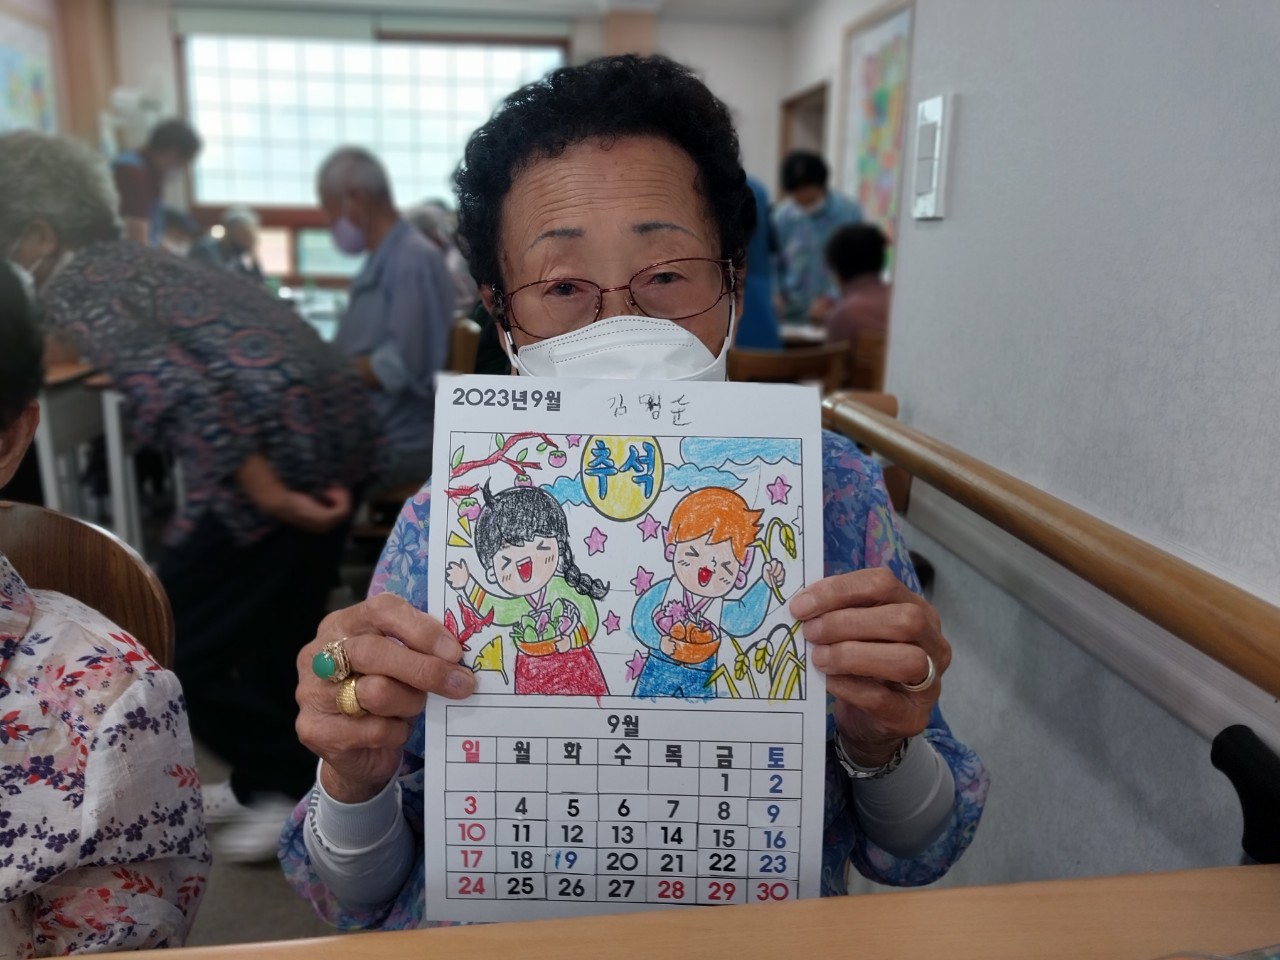 2023년9월 김명순
추석
9월
일 월 화 수 목 금 토
1 2
3 4 5 6 7 8 9
10 11 12 13 14 15 16
17 18 19 20 21 22 23
24 25 26 27 28 29 30